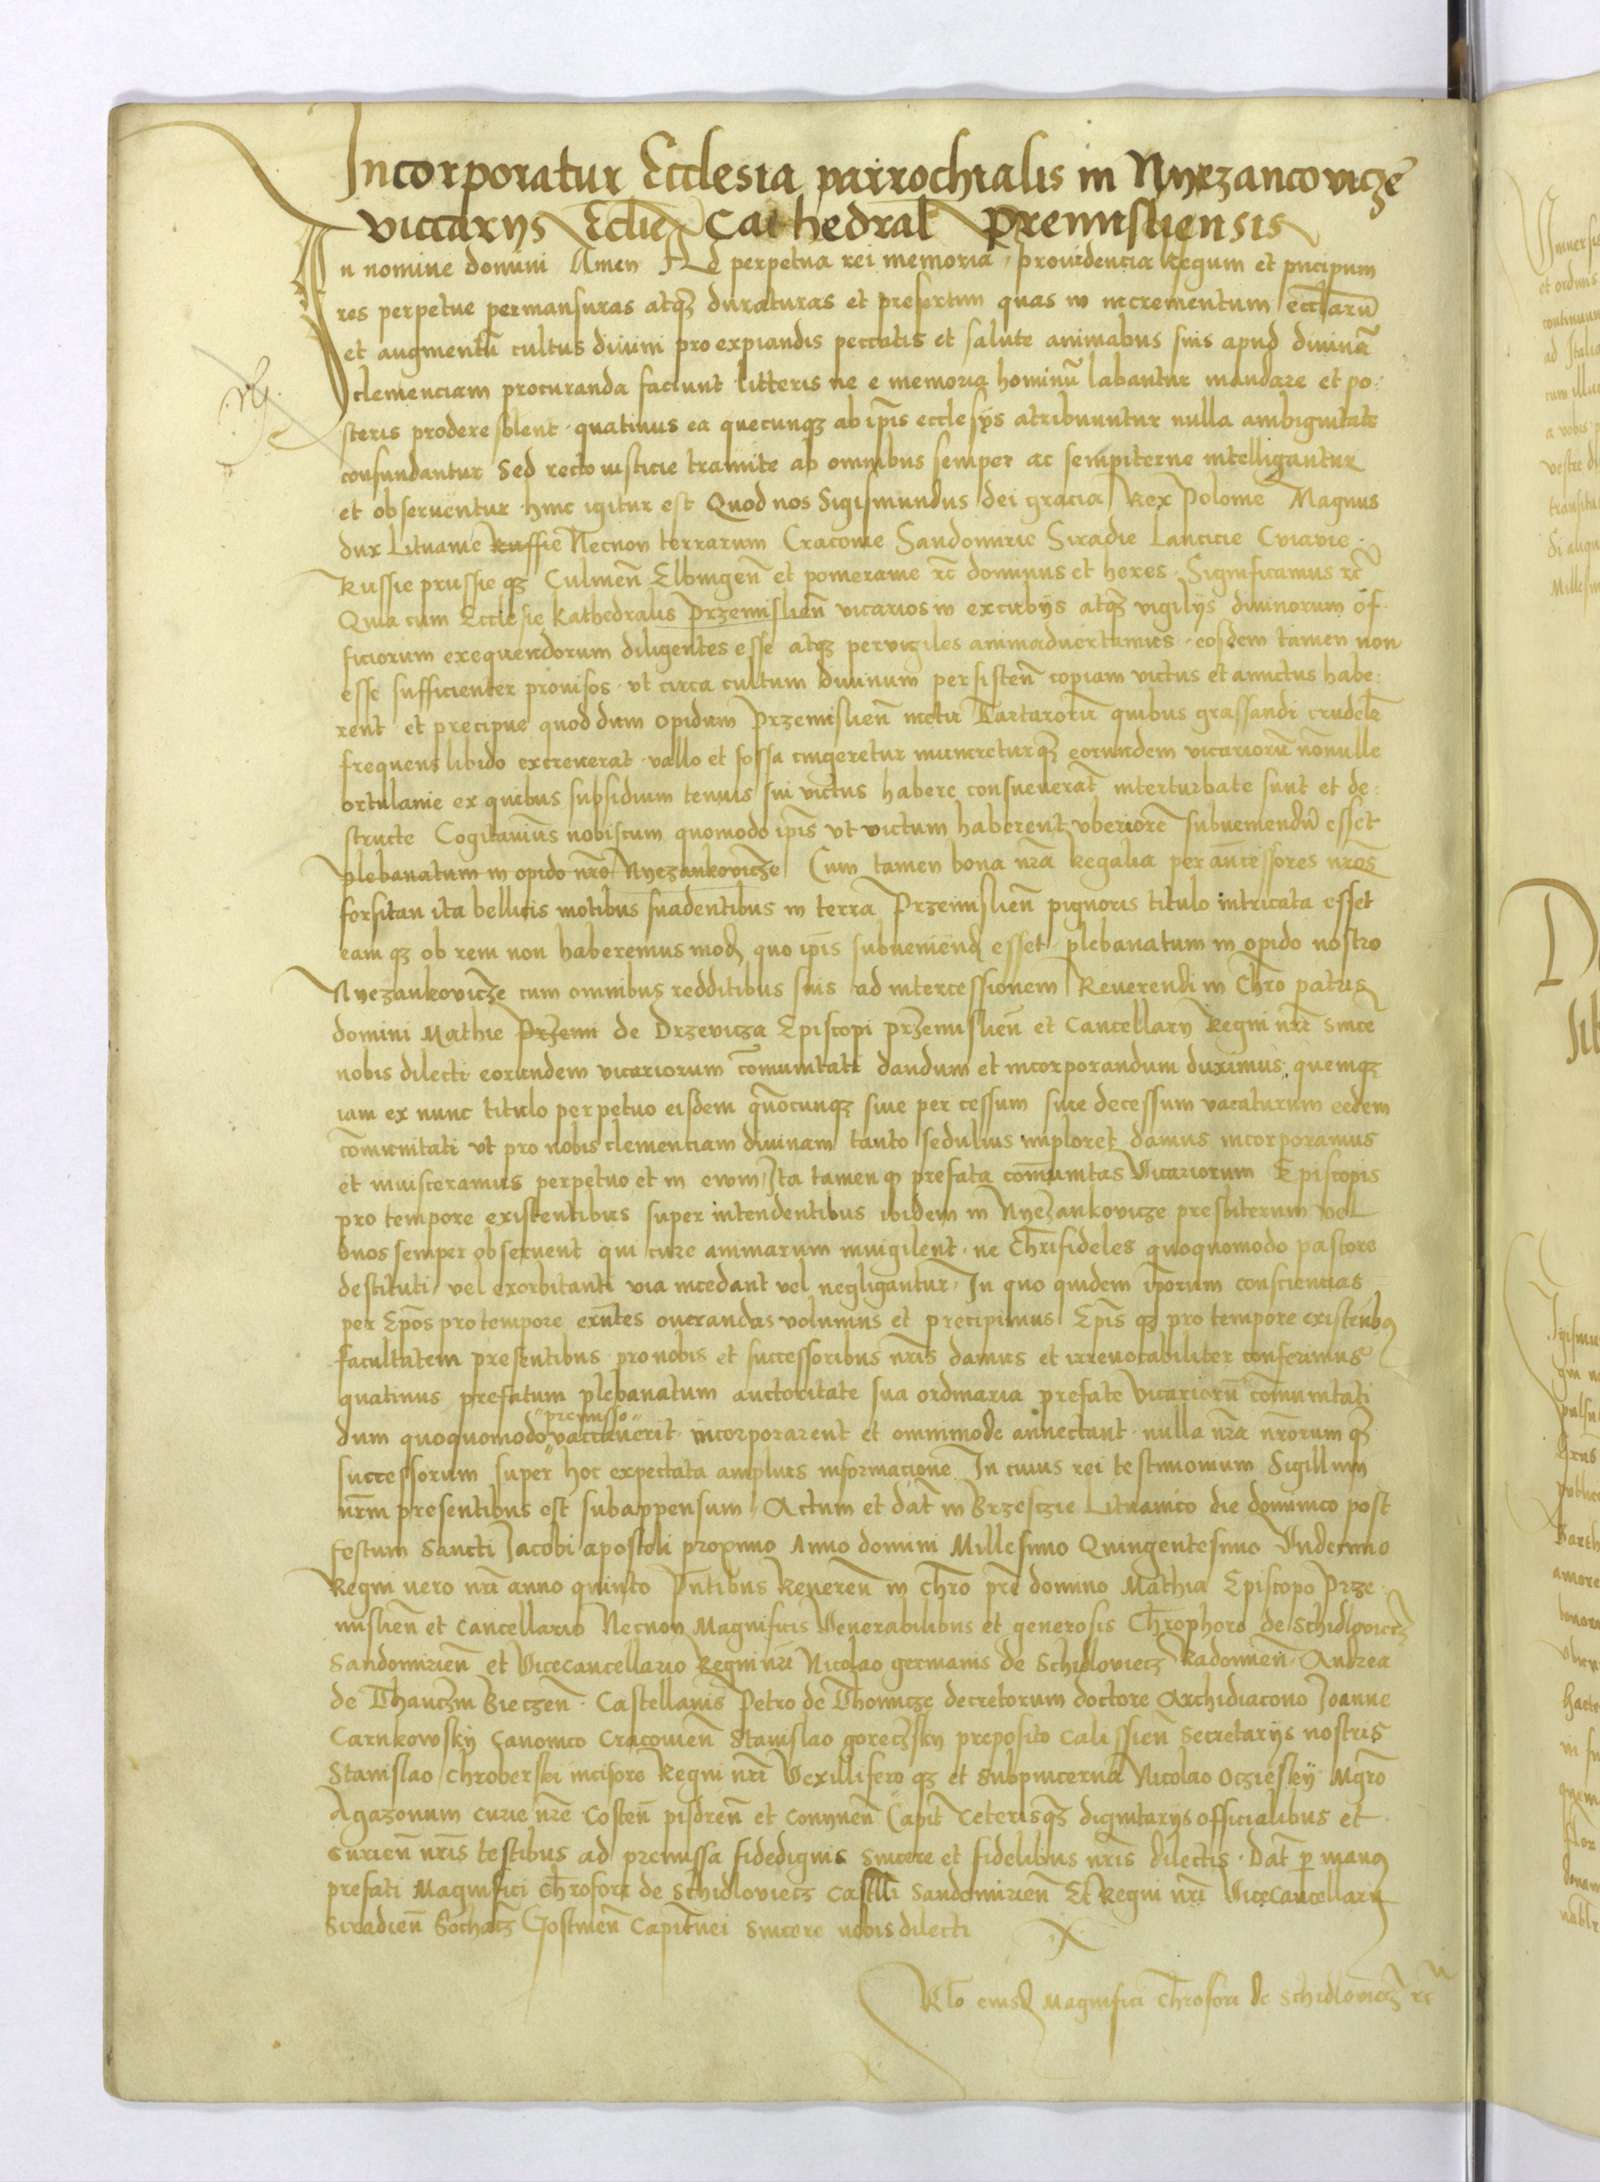 Incorporatur Ecclesia parrochialis in Nyezancovicze
viccarys Eclie Cathedral Premisliensis
In nomine domini Amen Ad perpetua rei memoria providencia Regum et pncipum
res perpetue permansuras atqȝ duraturas et presertim quas in incrementum eccliarū
et augmentū cultus diuini pro expiandis peccatis et salute animabus suis apud diuinā
clemenciam procuranda faciunt litteris ne e memoria hominū labantur mandare et po:
steris prodere solent quatinus ea quecunqȝ ab ipīs ecclesijs atribuuntur nulla ambiguitate
confundantur Sed recto iusticie tramite ab omnibus semper ac sempiterne intelligantur
et obseruentur hinc igitur est Quod nos Sigismundus dei gracia Rex Polonie Magnus
dux Lituanie Russie Necnon terrarum Cracouie Sandomirie Siradie Lancicie Cuiauie
Russie prussie qȝ Culmen̄ Elbingen̄ et pomeranie rc̄ dominus et heres Significamus rc̄
Quia cum Ecclesie Kathedralis Przemislien̄ vicarios in excubijs atqȝ vigilijs diuinorum of
ficiorum exequendorum diligentes esse atqȝ pervigiles animaduertamus eosdem tamen non
esse sufficienter prouisos vt circa cultum diuinum persisten̄ copiam victus et amictus habe:
rent et precipue quod dum opidum Przemislien̄ metu Tartarorū quibus grassandi crudelē
frequens libido excreuerat vallo et fossa cingeretur muniretur qȝ eorundem vicariorū nōnulle
ortulanie ex quibus subsidium tenuis sui victus habere consueuerāt interturbate sunt et de:
structe Cogitauim̄s nobiscum quomodo ipīs vt victum haberent vberiorē subueniendū esset
plebanatum in opido nrō Nyezankovicze Cum tamen bona nrā Regalia per an̄cessores nrōs
forsitan ita bellicis motibus suadentibus in terra Przemislien̄ pignoris titulo intricata esset
eam qȝ ob rem non haberemus mod̄ quo ipīs subueniend̄ esset plebanatum in opido nostro
Nyezankovicze cum omnibus redditibus suis ad intercessionem Reuerendi in Chrō patris
domini Mathie Przemi de Drzevicza Episcopi przemislien̄ et Cancellary Regni nrī since
nobis dilecti eorundem vicariorum cōmunitati dandum et incorporandum duximus quemqȝ
iam ex nunc titulo perpetuo eisdem quōcunqȝ siue per cessum siue decessum vacaturum eedem
cōmunitati vt pro nobis clemenciam diuinam tanto sedulius imploret damus incorporamus
et inuisceramus perpetuo et in ewm Ita tamen q prefata comūnitas Vicariorum Episcopis
pro tempore existentibus super intendentibus ibidem in Nyezankovicze presbiterum vel
duos semper obseruent qui cure animarum inuigilent ne Chrifideles quoquomodo pastore
destituti vel exorbitanti via incedant vel negligantur In quo quidem ip̄orum consciencias
per Epōs pro tempore exn̄tes onerandas volumus et precipimus Epīs qȝ pro tempore existentibꝫ
facultatem presentibus pro nobis et successoribus nrīs damus et irreuocabiliter conferimus
quatinus prefatum plebanatum auctoritate sua ordinaria prefate vicariorū comūnitati
dum quoquomodo "premisso" vaccauerit incorporarent et omnimode annectant nulla nrā nrōrum qȝ
successorum super hoc expectata amplius informacione In cuius rei testimonium Sigillum
nrm̄ presentibus est subappensum Actum et dat̄ in Brzesczie Lituanico die dominico post
festum Sancti Jacobi apostoli proximo Anno domini Millesimo Quingentesimo Vndecimo
Regni vero nrī anno quinto Pn̄tibus Reueren̄ in Chrō prē domino Mathia Episcopo Prze
mislien̄ et Cancellario Necnon Magnificis Venerabilibus et generosis Chrophoro de Schidlovietz
Sandomirien̄ et Vicecancellario Regni nrī Nicolao germanis de Schidlovietz Radomien̄ Andrea
de Thanczin Bieczen̄ Castellanis Petro de Thomicze decretorum doctore Archidiacono Joanne
Carnkowsky Canonico Cracouien̄ Stanislao goreczsky preposito Calissien̄ Secretarijs nostris
Stanislao Chroberski incisore Regni nrī Vexillifero qȝ et Subpincerna Nicolao Ocziesky Mgrō
Agazonum curie nrē Costen̄ pisdren̄ et Conynen̄ Capit̄ Ceterisqȝ dignitarijs officialibus et
Curien̄ nrīs testibus ad premissa fidedignis Sincere et fidelibus nrīs dilectis Dat̄ p manꝫ
prefati Magnifici Chrōfori de Schidlovietz Castlli Sandomirien̄ Et Regni nrī ViceCancellarij
Siradien̄ Sochatz Gostinen̄ Capitnei Sincere nobis dilecti
Rlō eiusd̄ Magnifici Chrōfori de Schidlovietz rc̄